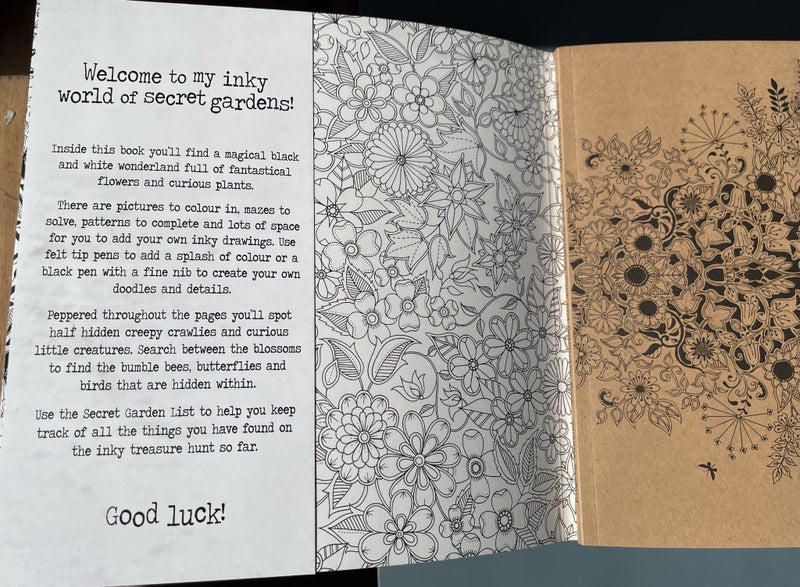 Welcome to my inky
world of secret gardens!
Inside this book you'll find a magical black
and white wonderland full of fantastical
flowers and curious plants.
There are pictures to colour in, mazes to
solve, patterns to complete and lots of space
for you to add your own inky drawings. Use
felt tip pens to add a splash of colour or a
black pen with a fine nib to create your own
doodles and details.
Peppered throughout the pages you'll spot
half hidden creepy crawlies and curious
little creatures. Search between the blossoms
to find the bumble bees, butterflies and
birds that are hidden within.
Use the Secret Garden List to help you keep
track of all the things you have found on
the inky treasure hunt so far.
Good luck!